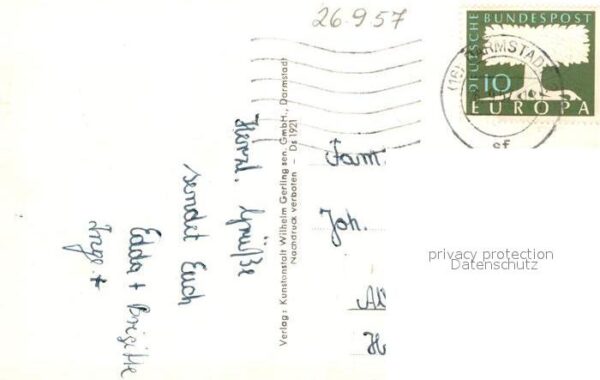 26.9.57
DEUTSCHE BUNDESPOST
10
EUROPA
(16) DARMSTADT
sf
Herzl. Grüße
sendet Euch
Edda + Brigitte
Inge +
Verlag: Kunstanstalt Wilhelm Gerling sen. GmbH., Darmstadt
Nachdruck verboten – Ds 1921
Fam.
Joh.
privacy protection
Datenschutz